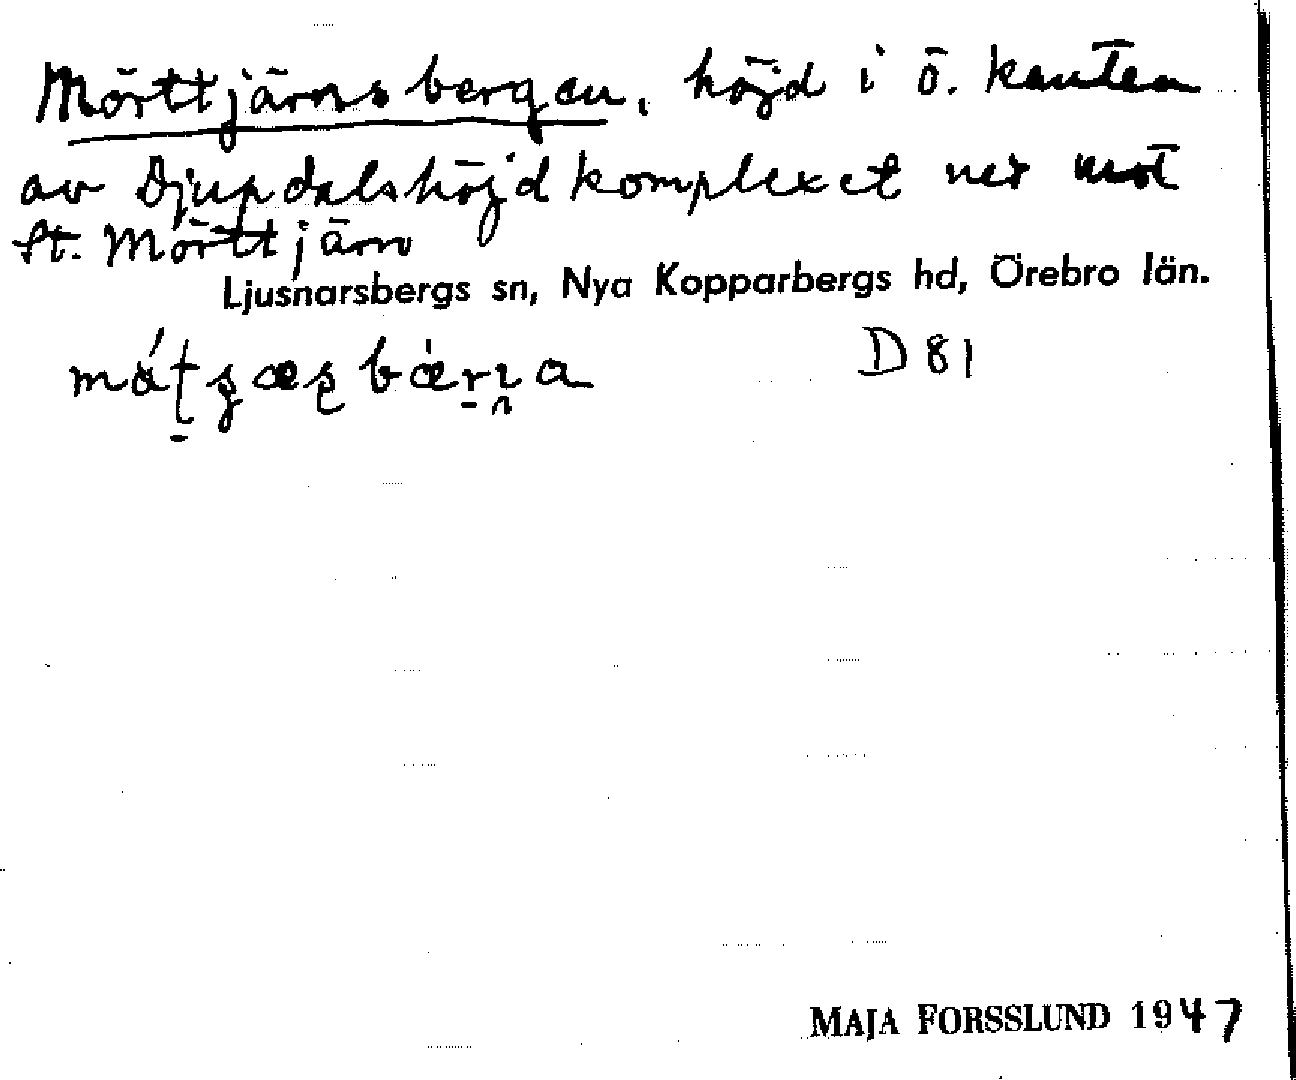 Mörttjärnsbergen, höjd i ö. kanten
av Djupdalshöjdkomplexet ner mot
St. Mörttjärn
Ljusnarsbergs sn, Nya Kopparbergs hd, Örebro län.
D 81
MAJA FORSSLUND 1947